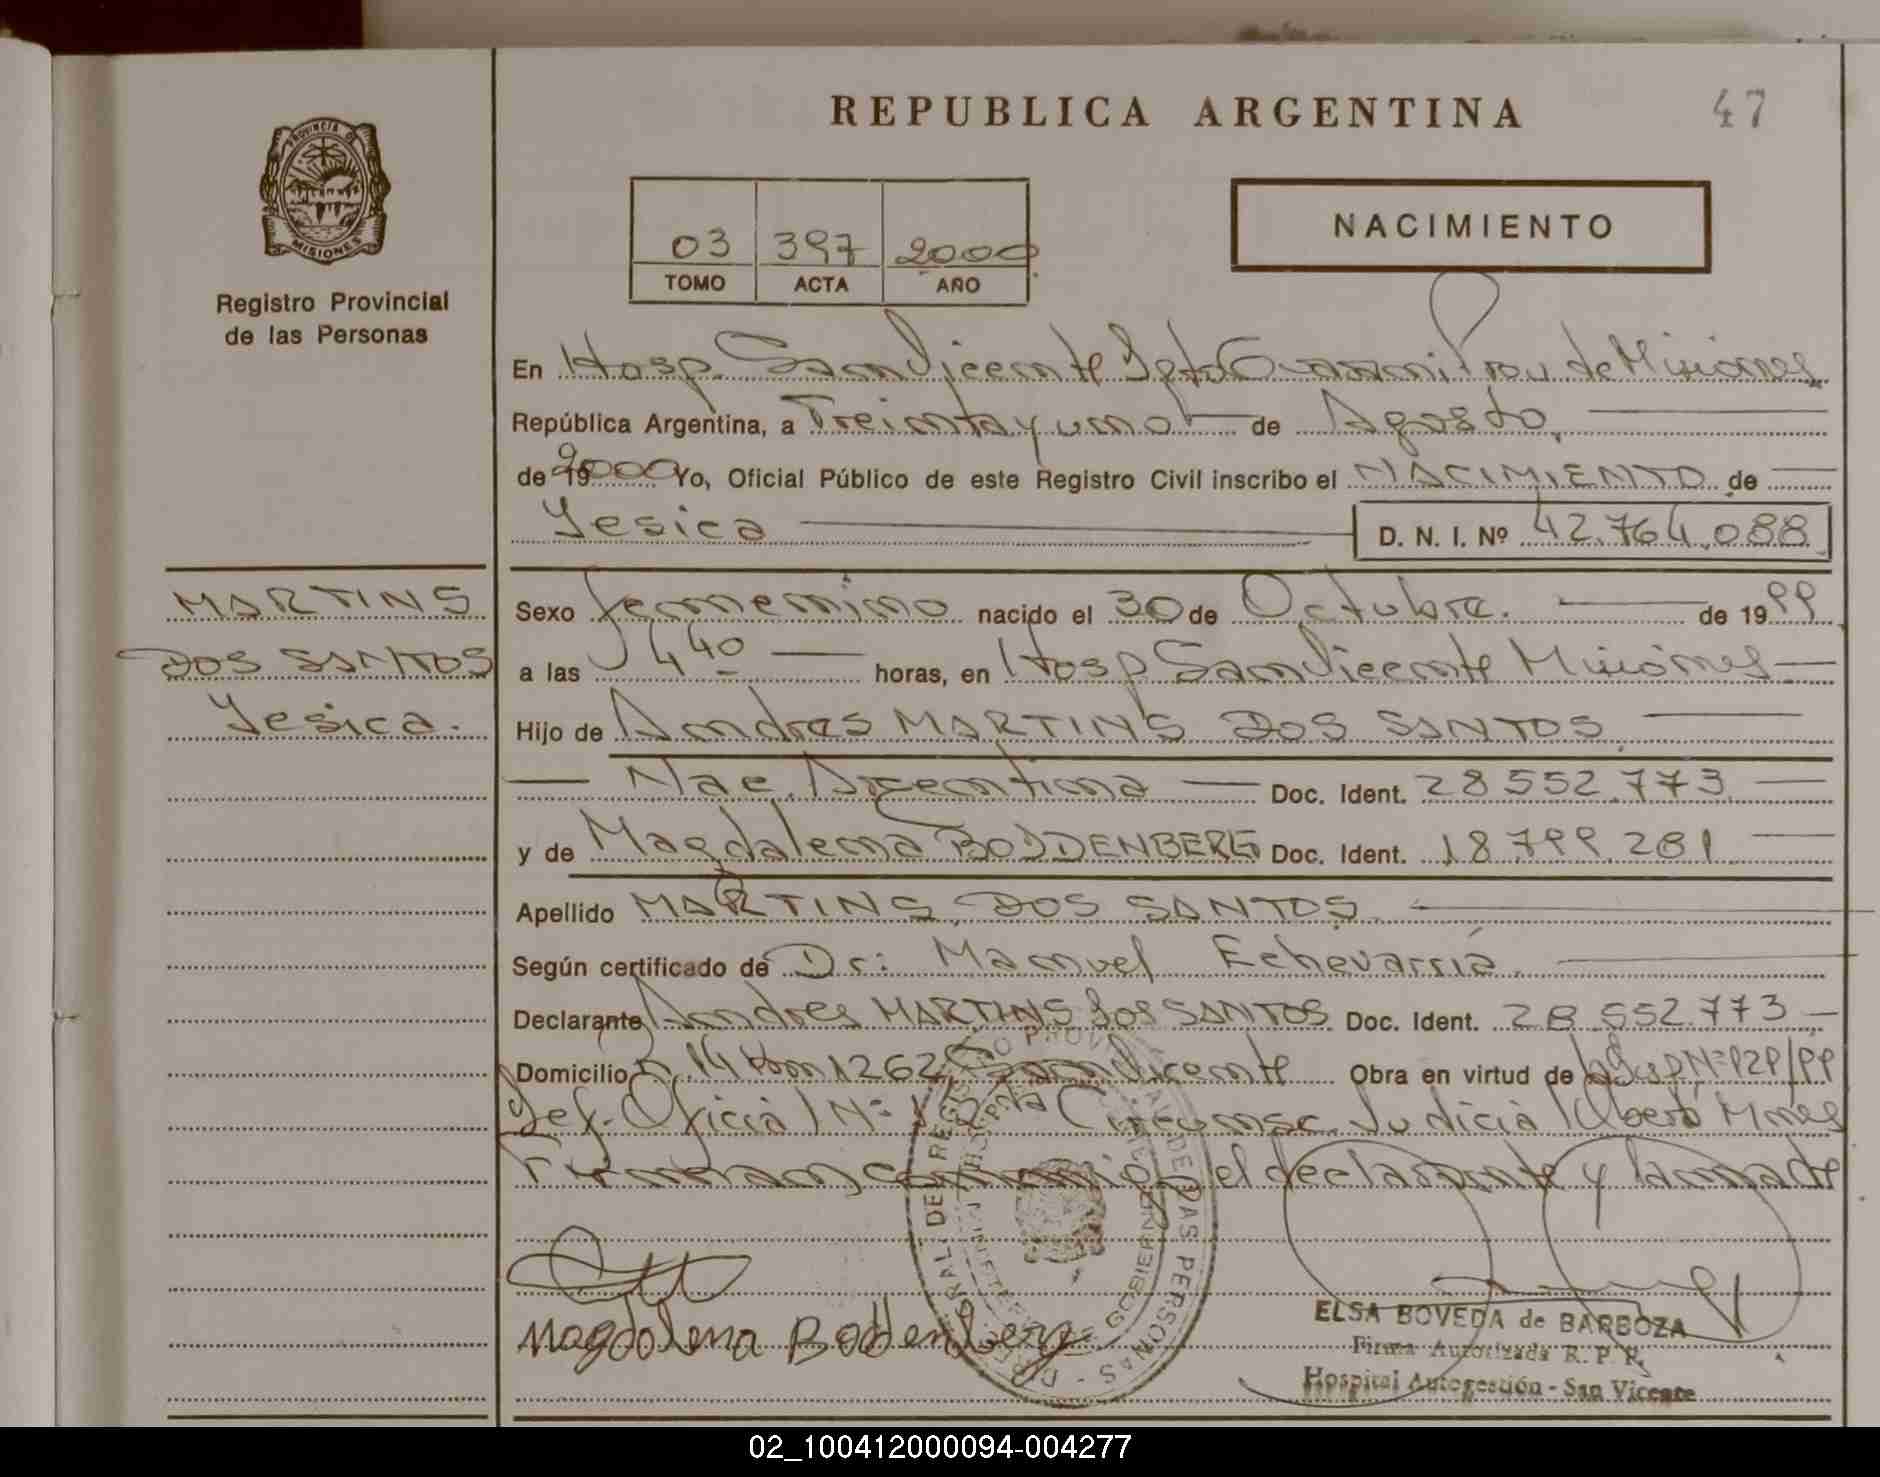 REPUBLICA ARGENTINA
47
PROVINCIA DE
MISIONES
Registro Provincial
de las Personas
03 397 2000
TOMO ACTA AÑO
NACIMIENTO
En Hosp. San Vicente Dpto Guarani Prov. de Misiones
República Argentina, a Treinta y uno de Agosto.
de 19 2000 Yo, Oficial Público de este Registro Civil inscribo el NACIMIENTO de
Yesica D. N. I. Nº 42.764.088
MARTINS
DOS SANTOS
Yesica.
Sexo femenino nacido el 30 de Octubre. de 1999
a las 4 40 horas, en Hosp San Vicente Misiones
Hijo de Andres MARTINS DOS SANTOS
Nac. Argentina Doc. Ident. 28552.773
y de Magdalena BODDENBERG Doc. Ident. 18.799.281
Apellido MARTINS DOS SANTOS
Según certificado de Dr: Manuel Echevarria
Declarante Andres MARTINS DOS SANTOS Doc. Ident. 28.552.773
Domicilio R. 14 Km 1262 San Vicente Obra en virtud de Nº 929/99
Oficial Nº Circunsc. Judicial Oberá Mnes
Firman conmigo el declarante y la madre
Magdalena Boddenberg
ELSA BOVEDA de BARBOZA
Firma Autorizada R. P. P.
Hospital Autogestión - San Vicente
02_100412000094-004277